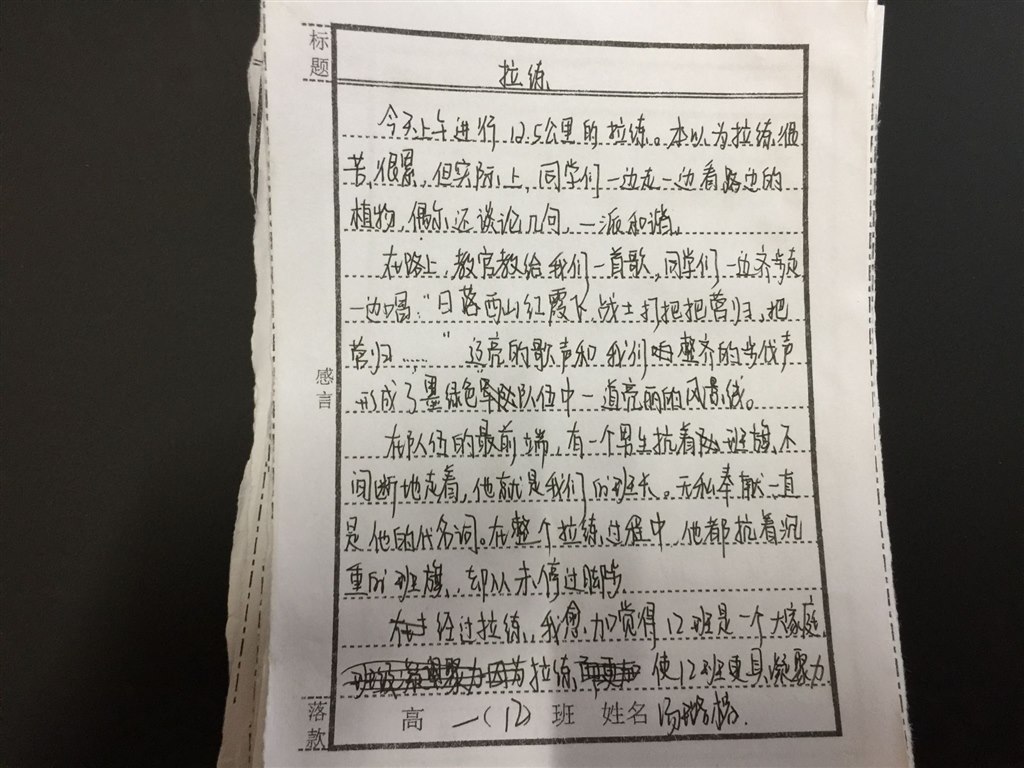 标题
拉练
今天上午进行12.5公里的拉练。本以为拉练很
苦,很累,但实际上,同学们一边走一边看路边的
植物,偶尔还谈论几句,一派和谐。
在路上,教官教给我们一首歌,同学们一边齐步走
一边唱:“日落西山红霞飞,战士打把把营归,把
营归……”嘹亮的歌声和我们响整齐的步伐声
形成了墨绿色军队队伍中一道亮丽的风景线。
在队伍的最前端,有一个男生扛着班旗,不
间断地走着,他就是我们的班长。无私奉献一直
是他的代名词。在整个拉练过程中,他都扛着沉
重的班旗,却从未停过脚步。
感言
经过拉练,我愈加觉得,12班是一个大家庭,
拉练使12班更具凝聚力
落款
高一(12)班 姓名